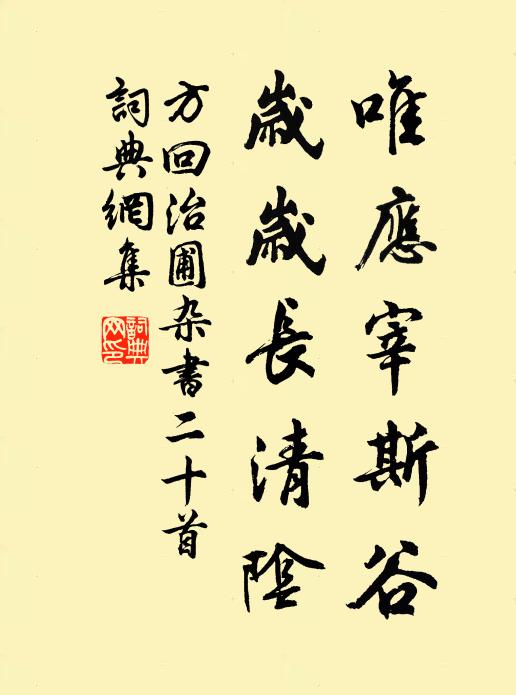 唯應宰斯谷
歲歲長清陰
方回治圃杂書二十首
詞典網集
詞典網印